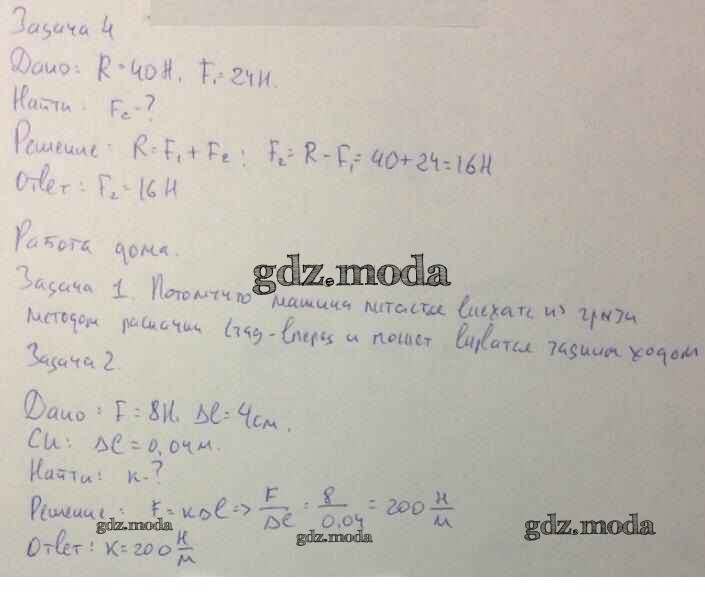 Задача 4
Дано: R=40Н. F₁=24Н.
Найти: F₂-?
Решение: R=F₁+F₂; F₂=R-F₁=40+24=16Н
Ответ: F₂=16Н
Работа дома.
gdz.moda
Задача 1. Потому что машина питается виехать из грязи
методом раскачки взад-вперед и может вирватся задним ходом
Задача 2.
Дано: F=8Н. Δl=4см.
Си: Δl=0,04м.
Найти: к-?
Решение: F=кΔl=> F/Δl = 8/0,04 = 200 Н/м
gdz.moda
gdz.moda
gdz.moda
Ответ: к=200 Н/м